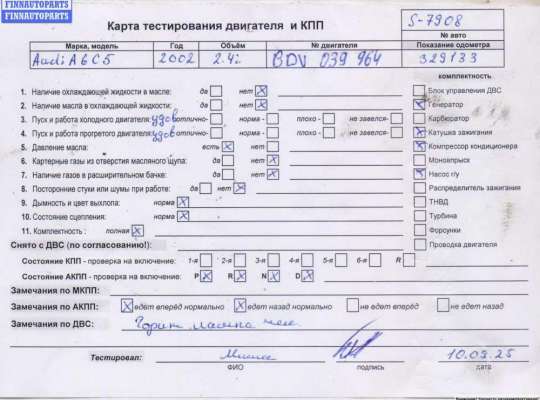 FINNAUTOPARTS
FINNAUTOPARTS
Карта тестирования двигателя и КПП
S-7908
№ авто
Марка, модель Год Объём № двигателя Показание одометра
Audi A6 C5 2002 2.4i BDV 039 964 329133
комплектность
1. Наличие охлаждающей жидкости в масле: да нет X Блок управления ДВС
2. Наличие масла в охлаждающей жидкости: да нет X X Генератор
3. Пуск и работа холодного двигателя: удов отлично- норма - плохо - не завелся- Карбюратор
4. Пуск и работа прогретого двигателя: удов отлично- норма - плохо - не завелся- X Катушка зажигания
5. Давление масла: есть X нет X Компрессор кондиционера
6. Картерные газы из отверстия масляного щупа: да нет Моновпрыск
7. Наличие газов в расширительном бачке: да нет X X Насос г/у
8. Посторонние стуки или шумы при работе: да нет X Распределитель зажигания
9. Дымность и цвет выхлопа: норма X ТНВД
10. Состояние сцепления: норма X Турбина
11. Комплектность : полная X Форсунки
Снято с ДВС (по согласованию!): Проводка двигателя
Состояние КПП - проверка на включение: 1-я 2-я 3-я 4-я 5-я 6-я R
Состояние АКПП - проверка на включение: P X R X N X D X
Замечания по МКПП:
Замечания по АКПП: X едет вперёд нормально X едет назад нормально не едет вперёд не едет назад
Замечания по ДВС: Горит лампа чек
Тестировал: 10.09.25
ФИО подпись дата